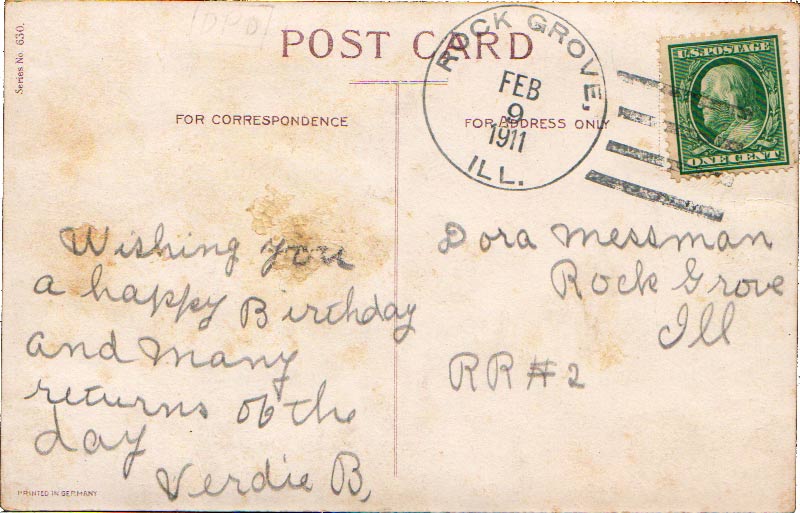 Series No. 630.
POST CARD
ROCK GROVE,
FEB
9
1911
ILL.
U.S. POSTAGE
ONE CENT
FOR CORRESPONDENCE
FOR ADDRESS ONLY
Wishing you
a happy Birthday
and many
returns of the
day
Verdie B,
Dora Messman
Rock Grove
Ill
RR#2
PRINTED IN GERMANY